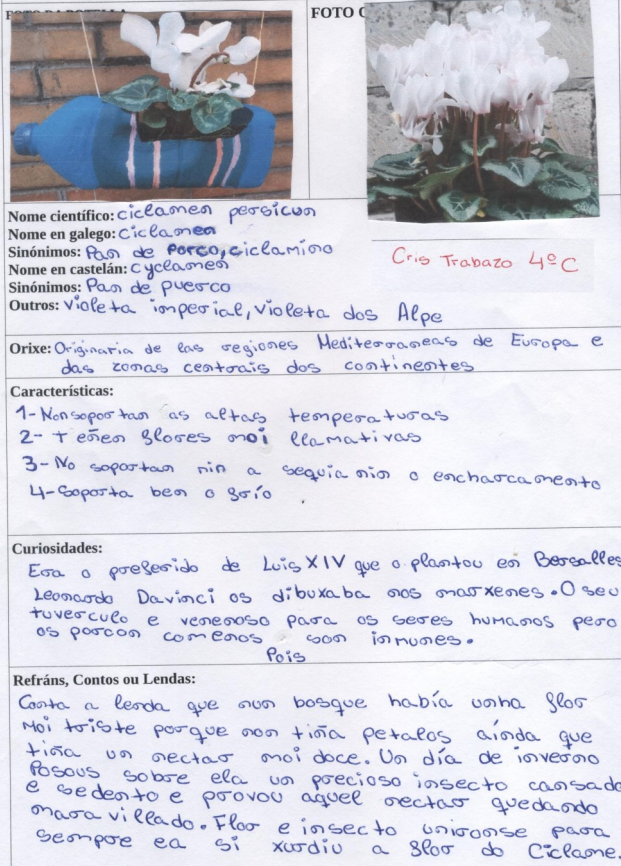 FOTO DA BOTELLA
FOTO
Nome científico: ciclamen persicun
Nome en galego: ciclamen
Sinónimos: Pan de Porco, ciclamino
Nome en castelán: cyclamen
Sinónimos: Pan de puerco
Outros: Violeta imperial, violeta dos Alpe
Cris Trabazo 4º C
Orixe: Originaria de las regiones Mediterraneas de Europa e
das zonas centrais dos continentes
Características:
1- Non soportan as altas temperaturas
2- Teñen flores moi llamativas
3- No soportan nin a sequia nin o encharcamento
4- Soporta ben o frío
Curiosidades:
Era o preferido de Luis XIV que o plantou en Bersalles
Leonardo Davinci os dibuxaba nos marxenes. O seu
tuverculo e venenoso para os seres humanos pero
os porcon comenos son inmunes.
Pois
Refráns, Contos ou Lendas:
Conta a lenda que nun bosque había unha flor
moi triste porque non tiña petalos aínda que
tiña un nectar moi doce. Un día de inverno
Posous sobre ela un precioso insecto cansado
e sedento e provou aquel nectar quedando
maravillado. Flor e insecto unironse para
sempre ea si xurdiu a flor do Ciclame.